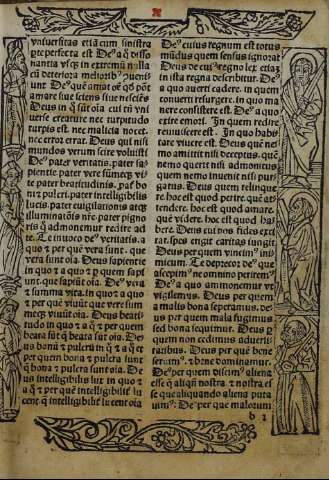 vniuersitas etiā cum sinistra
pte perfecta est. De⁹ a q̄ disso
nantia vsq; in extremū nulla
cū deteriora meliorib⁹ pueni
unt. De⁹ quē amat oē qd̄ pōt
amare siue sciens siue nesciēs
Deus in q̄ sūt oīa cui tn̄ vni
uerse creature nec turpitudo
turpis est. nec malicia nocet.
nec error errat. Deus qui nisi
mundos verum scire voluisti
De⁹ pater veritatis. pater sa
pientie. pater vere sūmeq; vi
te. pater beatitudinis. pať bo
ni ⁊ pulcri. pater intelligibilis
lucis. pater euigilationis atq;
illuminatiōis nr̄e. pater pigno
ris q̄ admonemur redire ad
te. Te inuoco de⁹ veritatis. a
quo ⁊ per quē vera sunt. que
vera sunt oīa. Deus sapientie
in quo ⁊ a quo ⁊ p quem sapi
unt. que sapiūt oīa. De⁹ vera
⁊ summa vita. in quo ⁊ a quo
⁊ per quē viuūt que vere sum
meq; viuūt oīa. Deus beati
tudo in quo ⁊ a q̄ ⁊ per quem
beata sūt q̄ beata sūt oīa. De
us bonū ⁊ pulcrū in q̄ ⁊ a q̄ ⁊
per quem bona ⁊ pulcra sunt
q̄ bona ⁊ pulcra sunt oīa. De
us intelligibilis lux in quo ⁊
a q̄ ⁊ per quē intelligibilit̄ lu
cent q̄ intelligibilit̄ lucent oīa
De⁹ cuius regnum est totus
mūdus quem sensus ignorat
Deus de cui⁹ regno lex etiaz
in ista regna describitur. De⁹
a quo auerti cadere. in quem
conuerti resurgere. in quo ma
nere consistere est. De⁹ a quo
exire emori. In quem redire
reuiuiscere est. In quo habi
tare viuere est. Deus quē ne
mo amittit nisi deceptus. quē
nemo querit nisi admonitus
quem nemo inuenit nisi pur
gatus. Deus quem relinque
re. hoc est quod perire. quē at
tendere. hoc est quod amare.
quē videre. hoc est quod hab
ere. Deus cui nos fides exci
tat. spes erigit caritas iungit.
Deus per quem vincim⁹ ini
micum. Te deprecor de⁹ que
accepim⁹ ne omnino perirem⁹
De⁹ a quo ammonemur vt
vigilemus. Deus per quem
a malis bona seperamus. de
us per quem mala fugimus
sed bona sequimur. Deus p
quem non cedimus aduersi
tatibus. Deus per quē bene
seruim⁹ ⁊ bene dominamur.
De⁹ per quem discim⁹ aliena
esse q̄ aliqn̄ nostra. ⁊ nostra es
se que aliquando aliena puta
uim⁹. De⁹ per que malorum
b 1